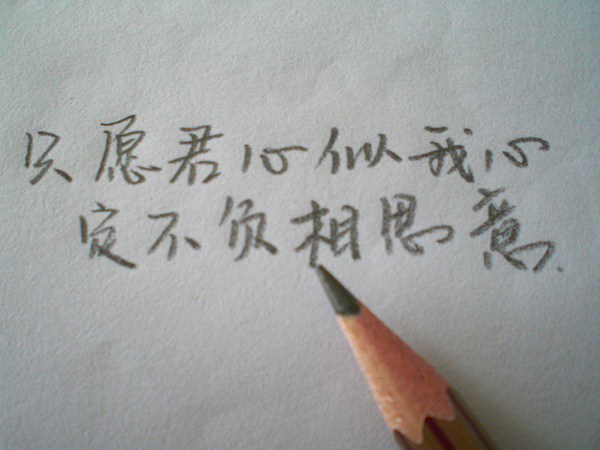 只愿君心似我心
定不负相思意.